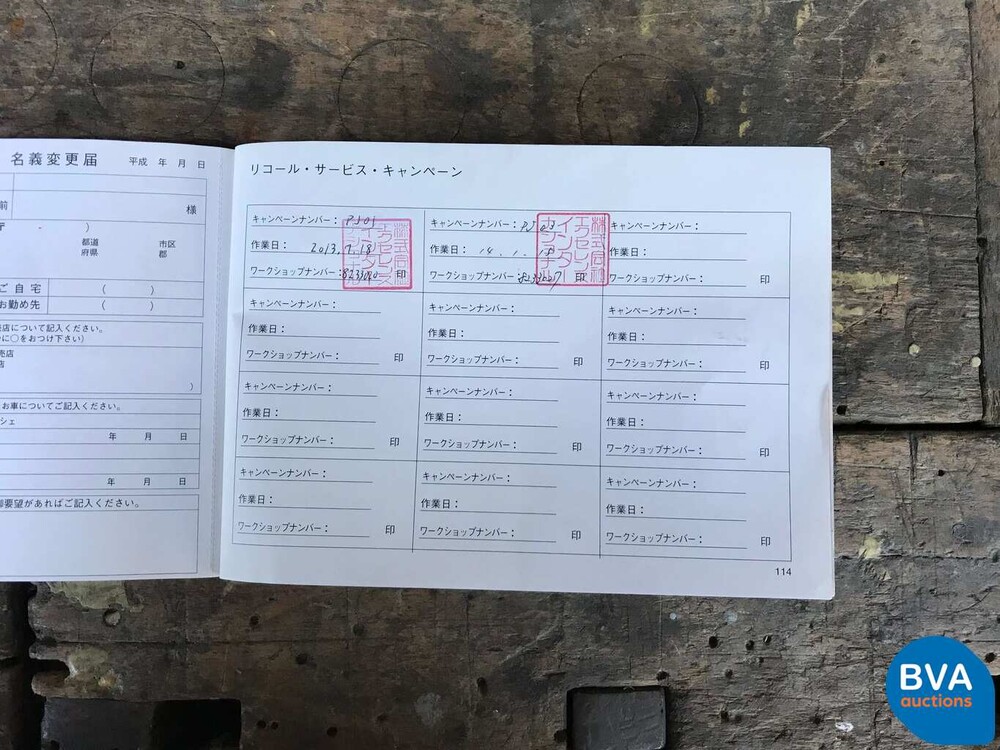 名義変更届 平成 年 月 日
前
様
〒 - )
都道 市区
府県 郡
ご自宅 ( )
お勤め先 ( )
店について記入ください。
に○をおつけ下さい)
売店
店
)
お車についてご記入ください。
シェ
年 月 日
年 月 日
御要望があればご記入ください。
リコール・サービス・キャンペーン
キャンペーンナンバー：
作業日： 2013.7.18
ワークショップナンバー： 印
株式会社
エクセレンス
インターナショナル
キャンペーンナンバー：
作業日：
ワークショップナンバー： 印
株式会社
エクセレンス
インターナショナル
キャンペーンナンバー：
作業日：
ワークショップナンバー： 印
キャンペーンナンバー：
作業日：
ワークショップナンバー： 印
キャンペーンナンバー：
作業日：
ワークショップナンバー： 印
キャンペーンナンバー：
作業日：
ワークショップナンバー： 印
キャンペーンナンバー：
作業日：
ワークショップナンバー： 印
キャンペーンナンバー：
作業日：
ワークショップナンバー： 印
キャンペーンナンバー：
作業日：
ワークショップナンバー： 印
キャンペーンナンバー：
作業日：
ワークショップナンバー： 印
キャンペーンナンバー：
作業日：
ワークショップナンバー： 印
キャンペーンナンバー：
作業日：
ワークショップナンバー： 印
114
BVA
auctions